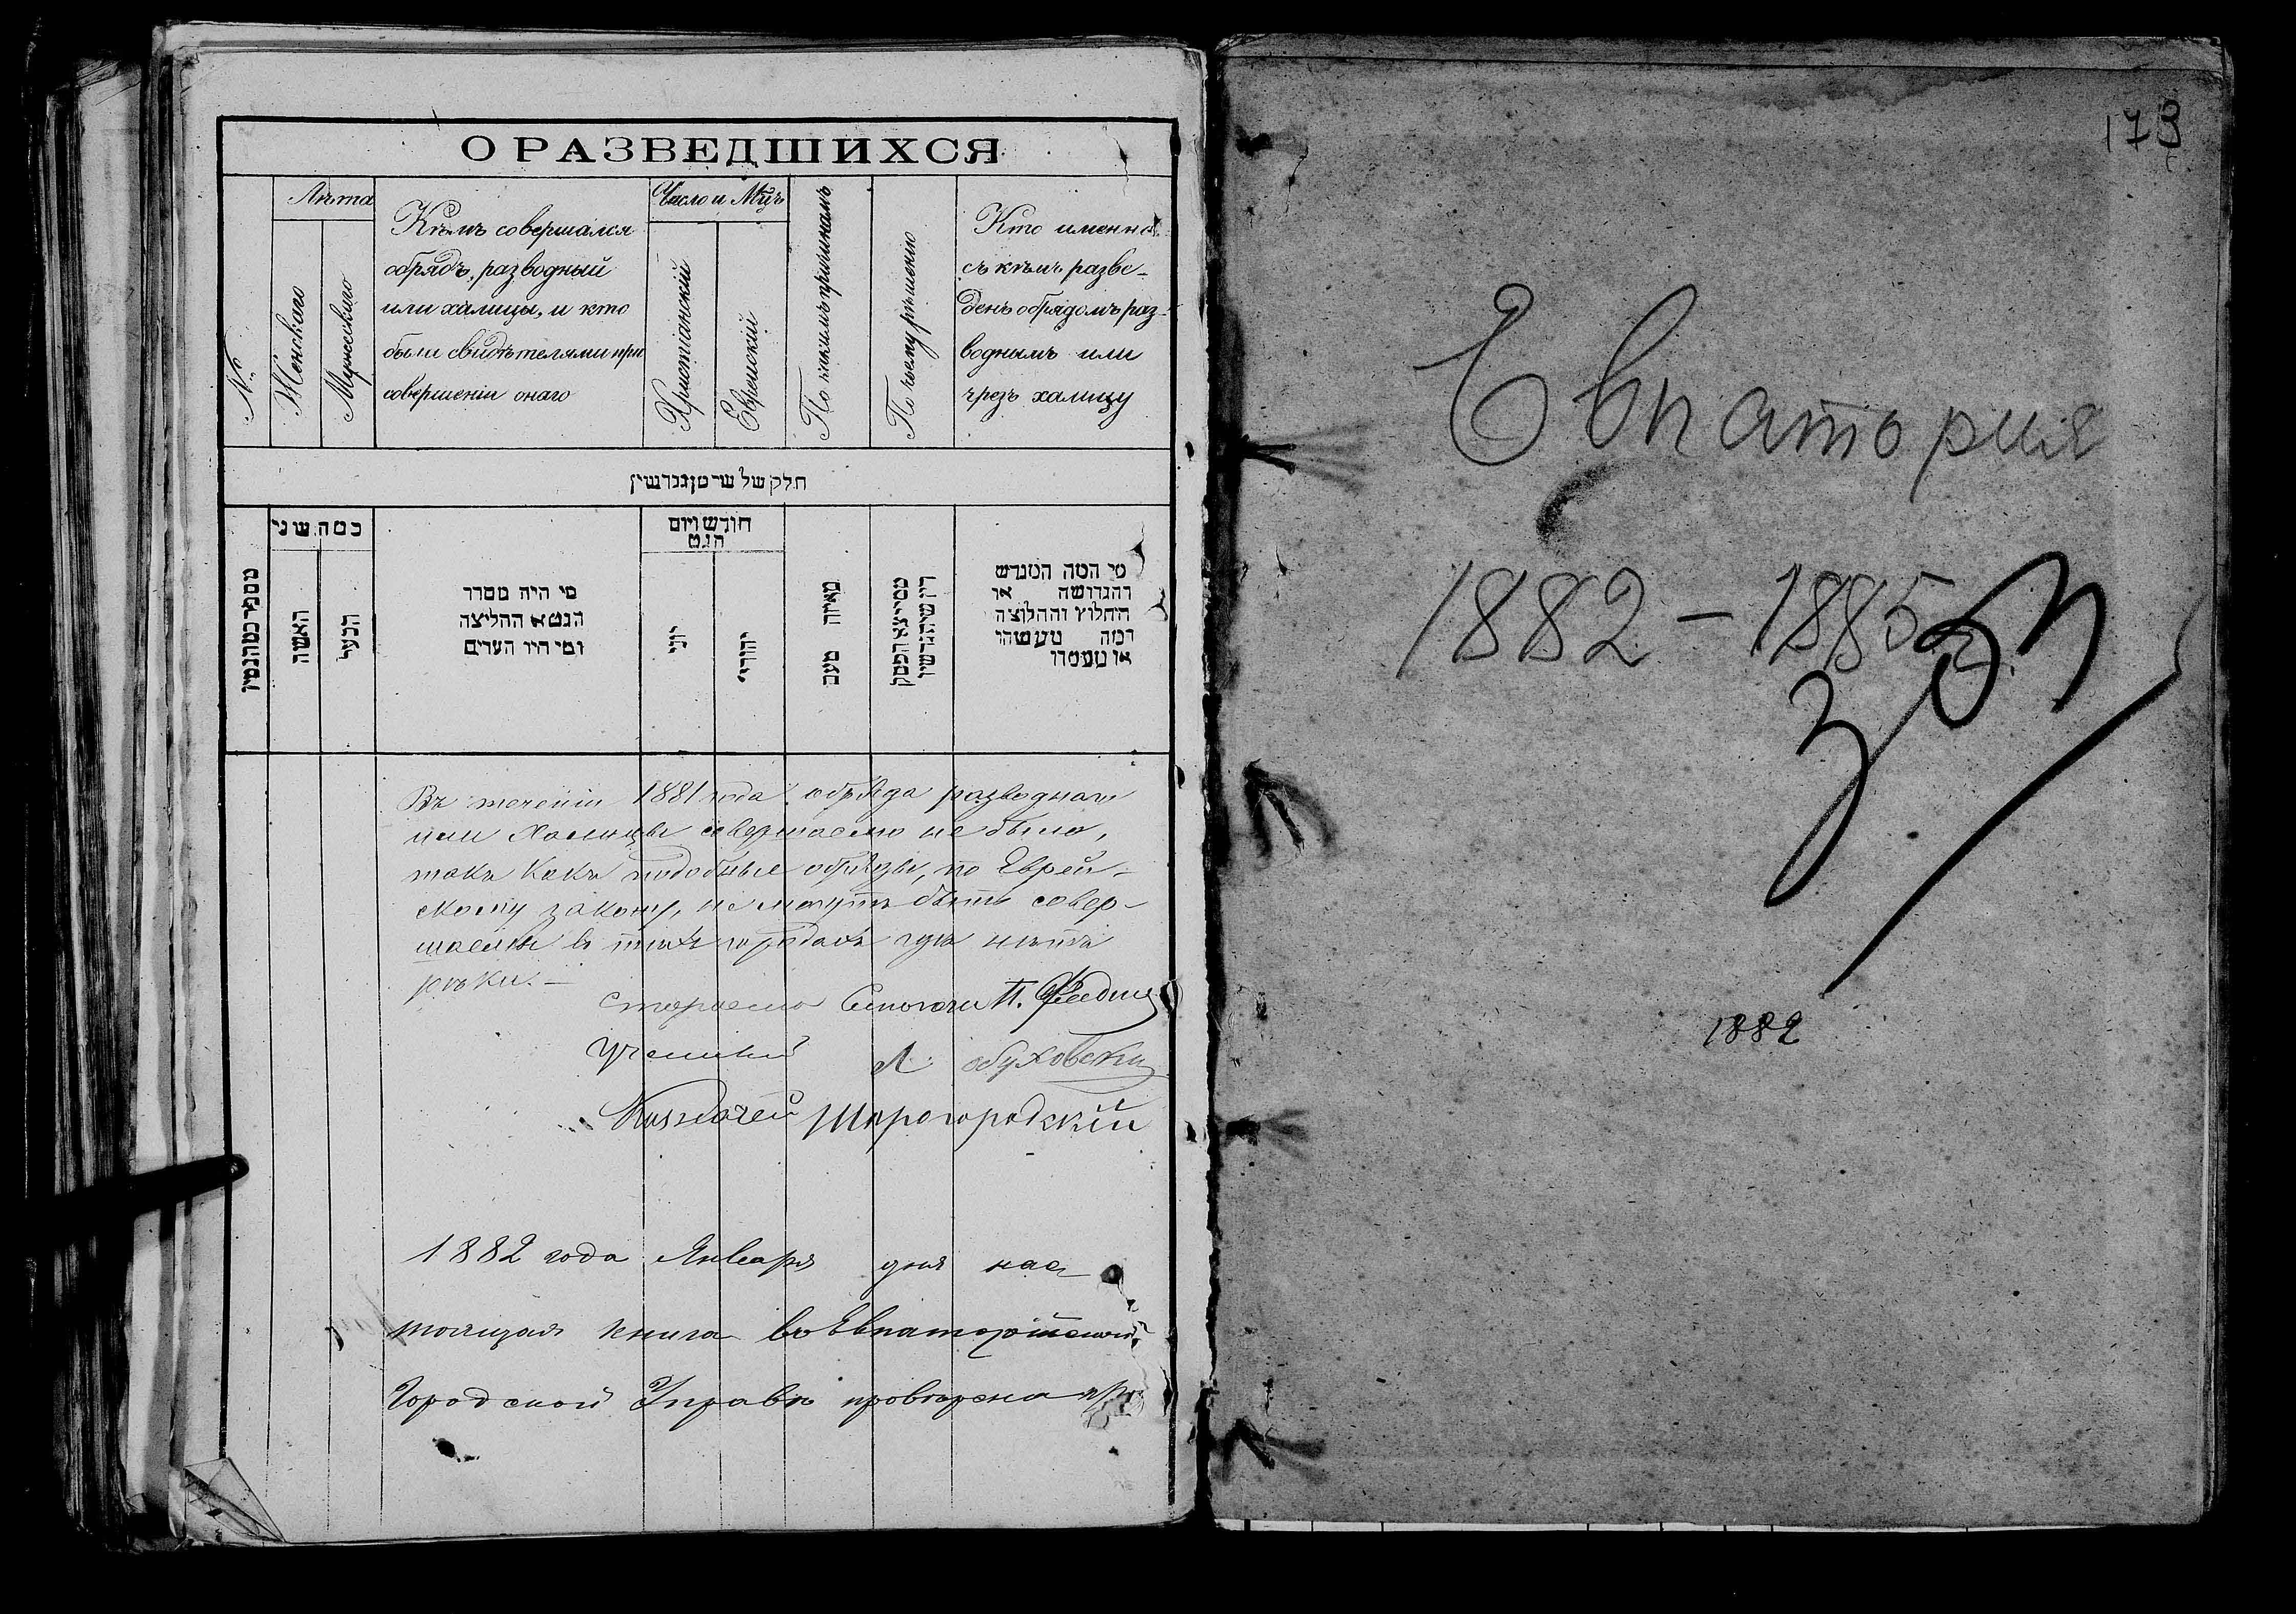 О РАЗВЕДШИХСЯ
№
Лѣта
Женскаго
Мужескаго
Кѣмъ совершался
обрядъ, разводный
или халицы, и кто
были свидѣтелями при
совершеніи онаго
Число и Мцъ
Христіанскій
Еврейскій
По какимъ причинамъ
По чьему рѣшенію
Кто именно
съ кѣмъ разве-
денъ обрядомъ раз-
воднымъ или
чрезъ халицу
חלק של שרטון גרושין
כמה שני
האשה
הבעל
מי היה מסדר
הגט או החליצה
ומי היו העדים
חודש ויום
הגט
יוני
יהודי
מאיזה טעם
מי המה המגרש
והגרושה או
החלוץ והחלוצה
ומה מעשהו
או מעמדו
Въ теченіи 1881 года обряда разводнаго
или Халицы совершаемо не было,
такъ какъ подобные обряды, по Еврей-
скому закону, не могутъ быть совер-
шаемы въ тѣхъ городахъ гдѣ нѣтъ
рѣки. –
Староста
Ученый Л. Обуховскій
Казначей Шарогородскій
1882 года Января дня нас
тоящая книга въ Евпаторійской
Городской Управѣ провѣрена
179
Евпатория
1882 – 1885
1882